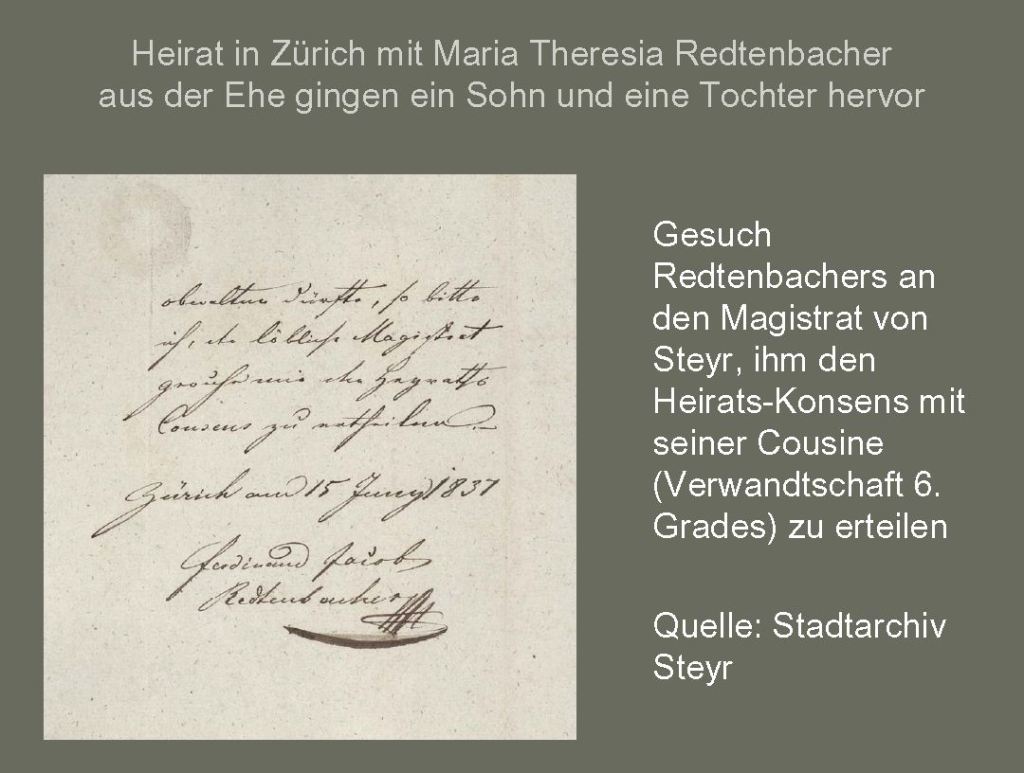 Heirat in Zürich mit Maria Theresia Redtenbacher
aus der Ehe gingen ein Sohn und eine Tochter hervor
obwalten dürfte, so bitte
ich, ein löblicher Magistrat
geruhe mir den Heyraths
Consens zu ertheilen.
Zürich am 15 Juny 1837
Ferdinand Jacob
Redtenbacher
Gesuch
Redtenbachers an
den Magistrat von
Steyr, ihm den
Heirats-Konsens mit
seiner Cousine
(Verwandtschaft 6.
Grades) zu erteilen
Quelle: Stadtarchiv
Steyr